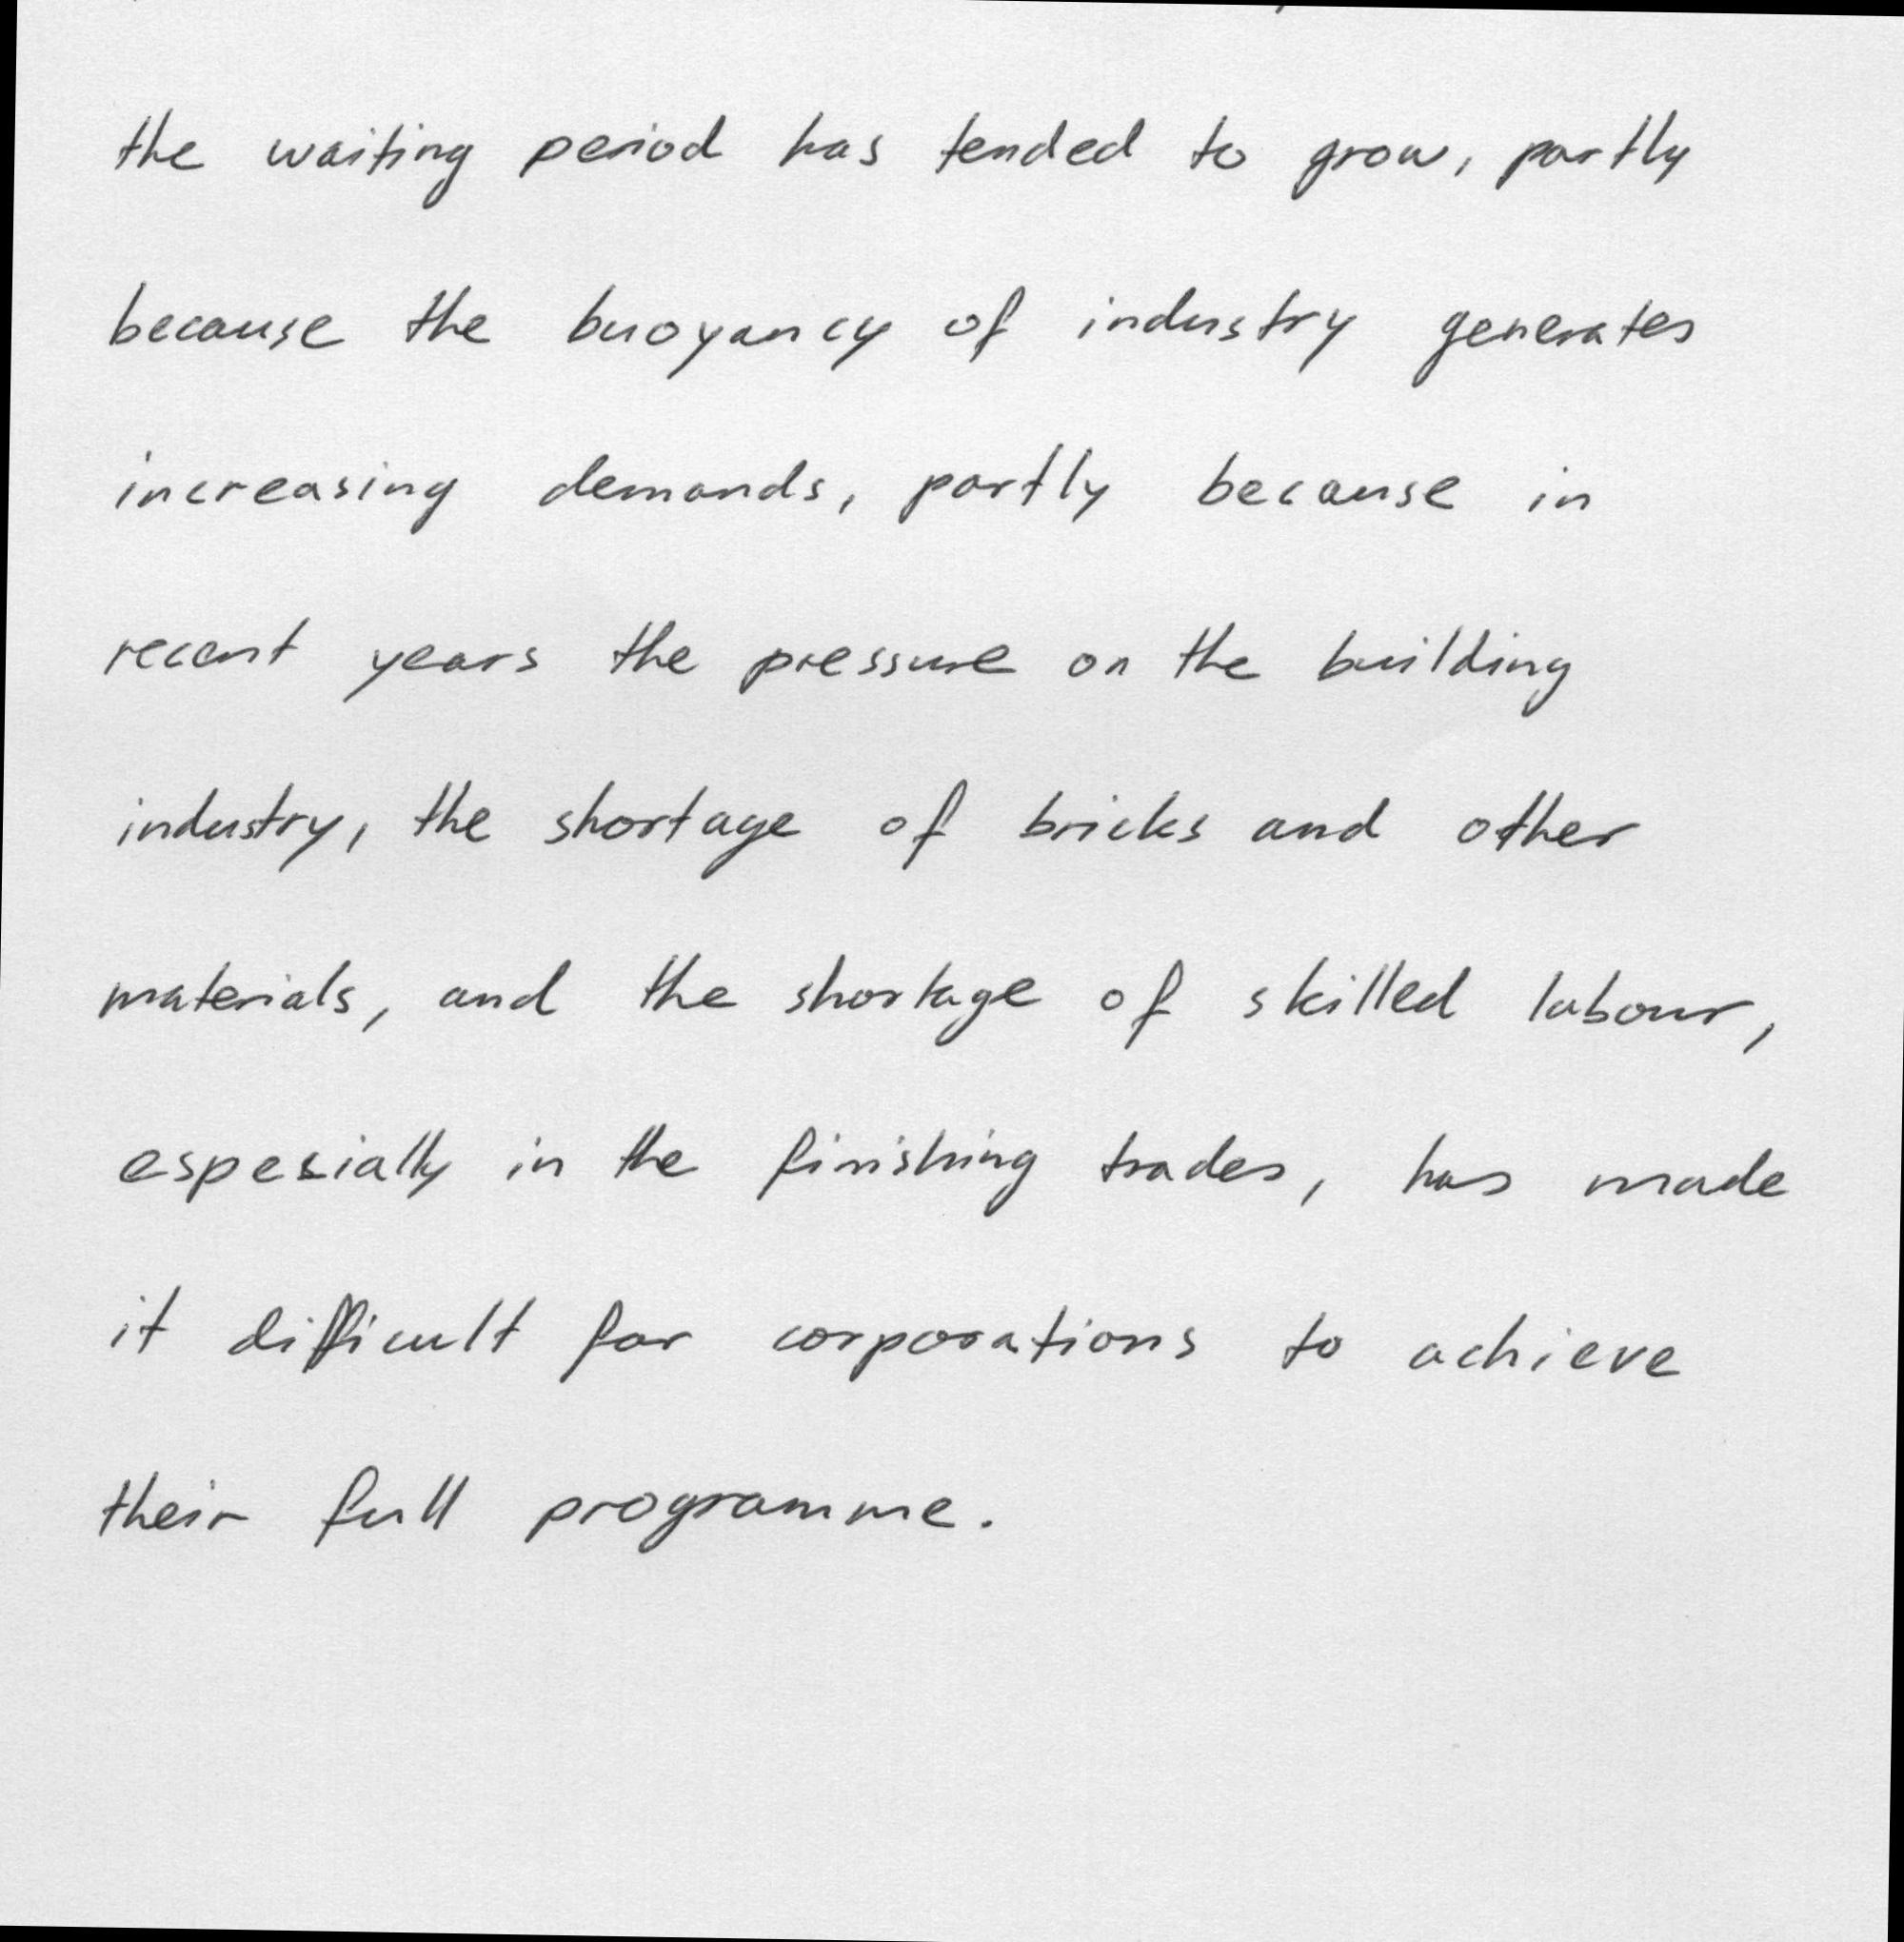 the waiting period has tended to grow, partly
because the buoyancy of industry generates
increasing demands, partly because in
recent years the pressure on the building
industry, the shortage of bricks and other
materials, and the shortage of skilled labour,
especially in the finishing trades, has made
it difficult for corporations to achieve
their full programme.